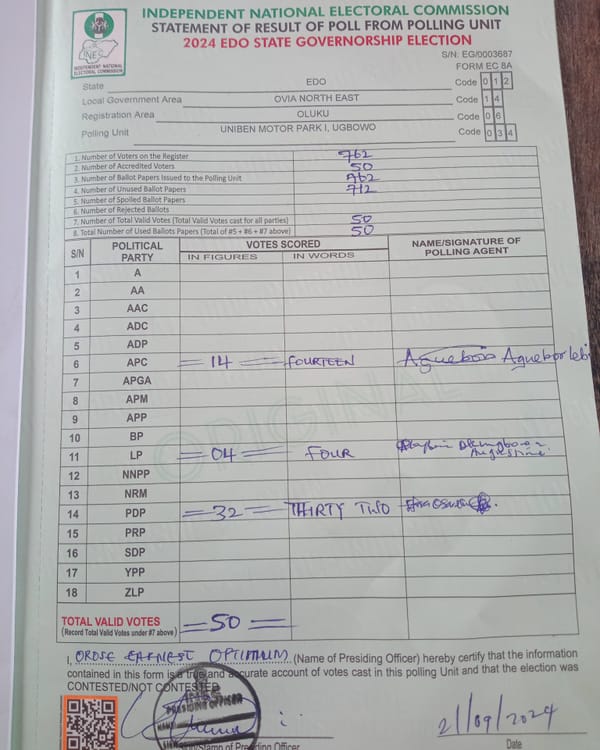 INDEPENDENT NATIONAL ELECTORAL COMMISSION
STATEMENT OF RESULT OF POLL FROM POLLING UNIT
2024 EDO STATE GOVERNORSHIP ELECTION
INEC
INDEPENDENT NATIONAL
ELECTORAL COMMISSION
S/N: EG/0003687
FORM EC 8A
State EDO Code 0 1 2
Local Government Area OVIA NORTH EAST Code 1 4
Registration Area OLUKU Code 0 6
Polling Unit UNIBEN MOTOR PARK I, UGBOWO Code 0 3 4
1. Number of Voters on the Register 762
2. Number of Accredited Voters 50
3. Number of Ballot Papers Issued to the Polling Unit 762
4. Number of Unused Ballot Papers 712
5. Number of Spoiled Ballot Papers
6. Number of Rejected Ballots
7. Number of Total Valid Votes (Total Valid Votes cast for all parties) 50
8. Total Number of Used Ballots Papers (Total of #5 + #6 + #7 above) 50
S/N POLITICAL PARTY VOTES SCORED NAME/SIGNATURE OF POLLING AGENT
IN FIGURES IN WORDS
1 A
2 AA
3 AAC
4 ADC
5 ADP
6 APC =14= FOURTEEN
7 APGA
8 APM
9 APP
10 BP
11 LP =04= FOUR Augustine
12 NNPP
13 NRM
14 PDP =32= THIRTY TWO
15 PRP
16 SDP
17 YPP
18 ZLP
ORIGINAL
TOTAL VALID VOTES =50=
(Record Total Valid Votes under #7 above)
I, ORDSE EARNEST OPTIMUM (Name of Presiding Officer) hereby certify that the information
contained in this form is a true and accurate account of votes cast in this polling Unit and that the election was
CONTESTED/NOT CONTESTED
PRESIDING OFFICER
21/09/2024
Stamp of Presiding Officer Date